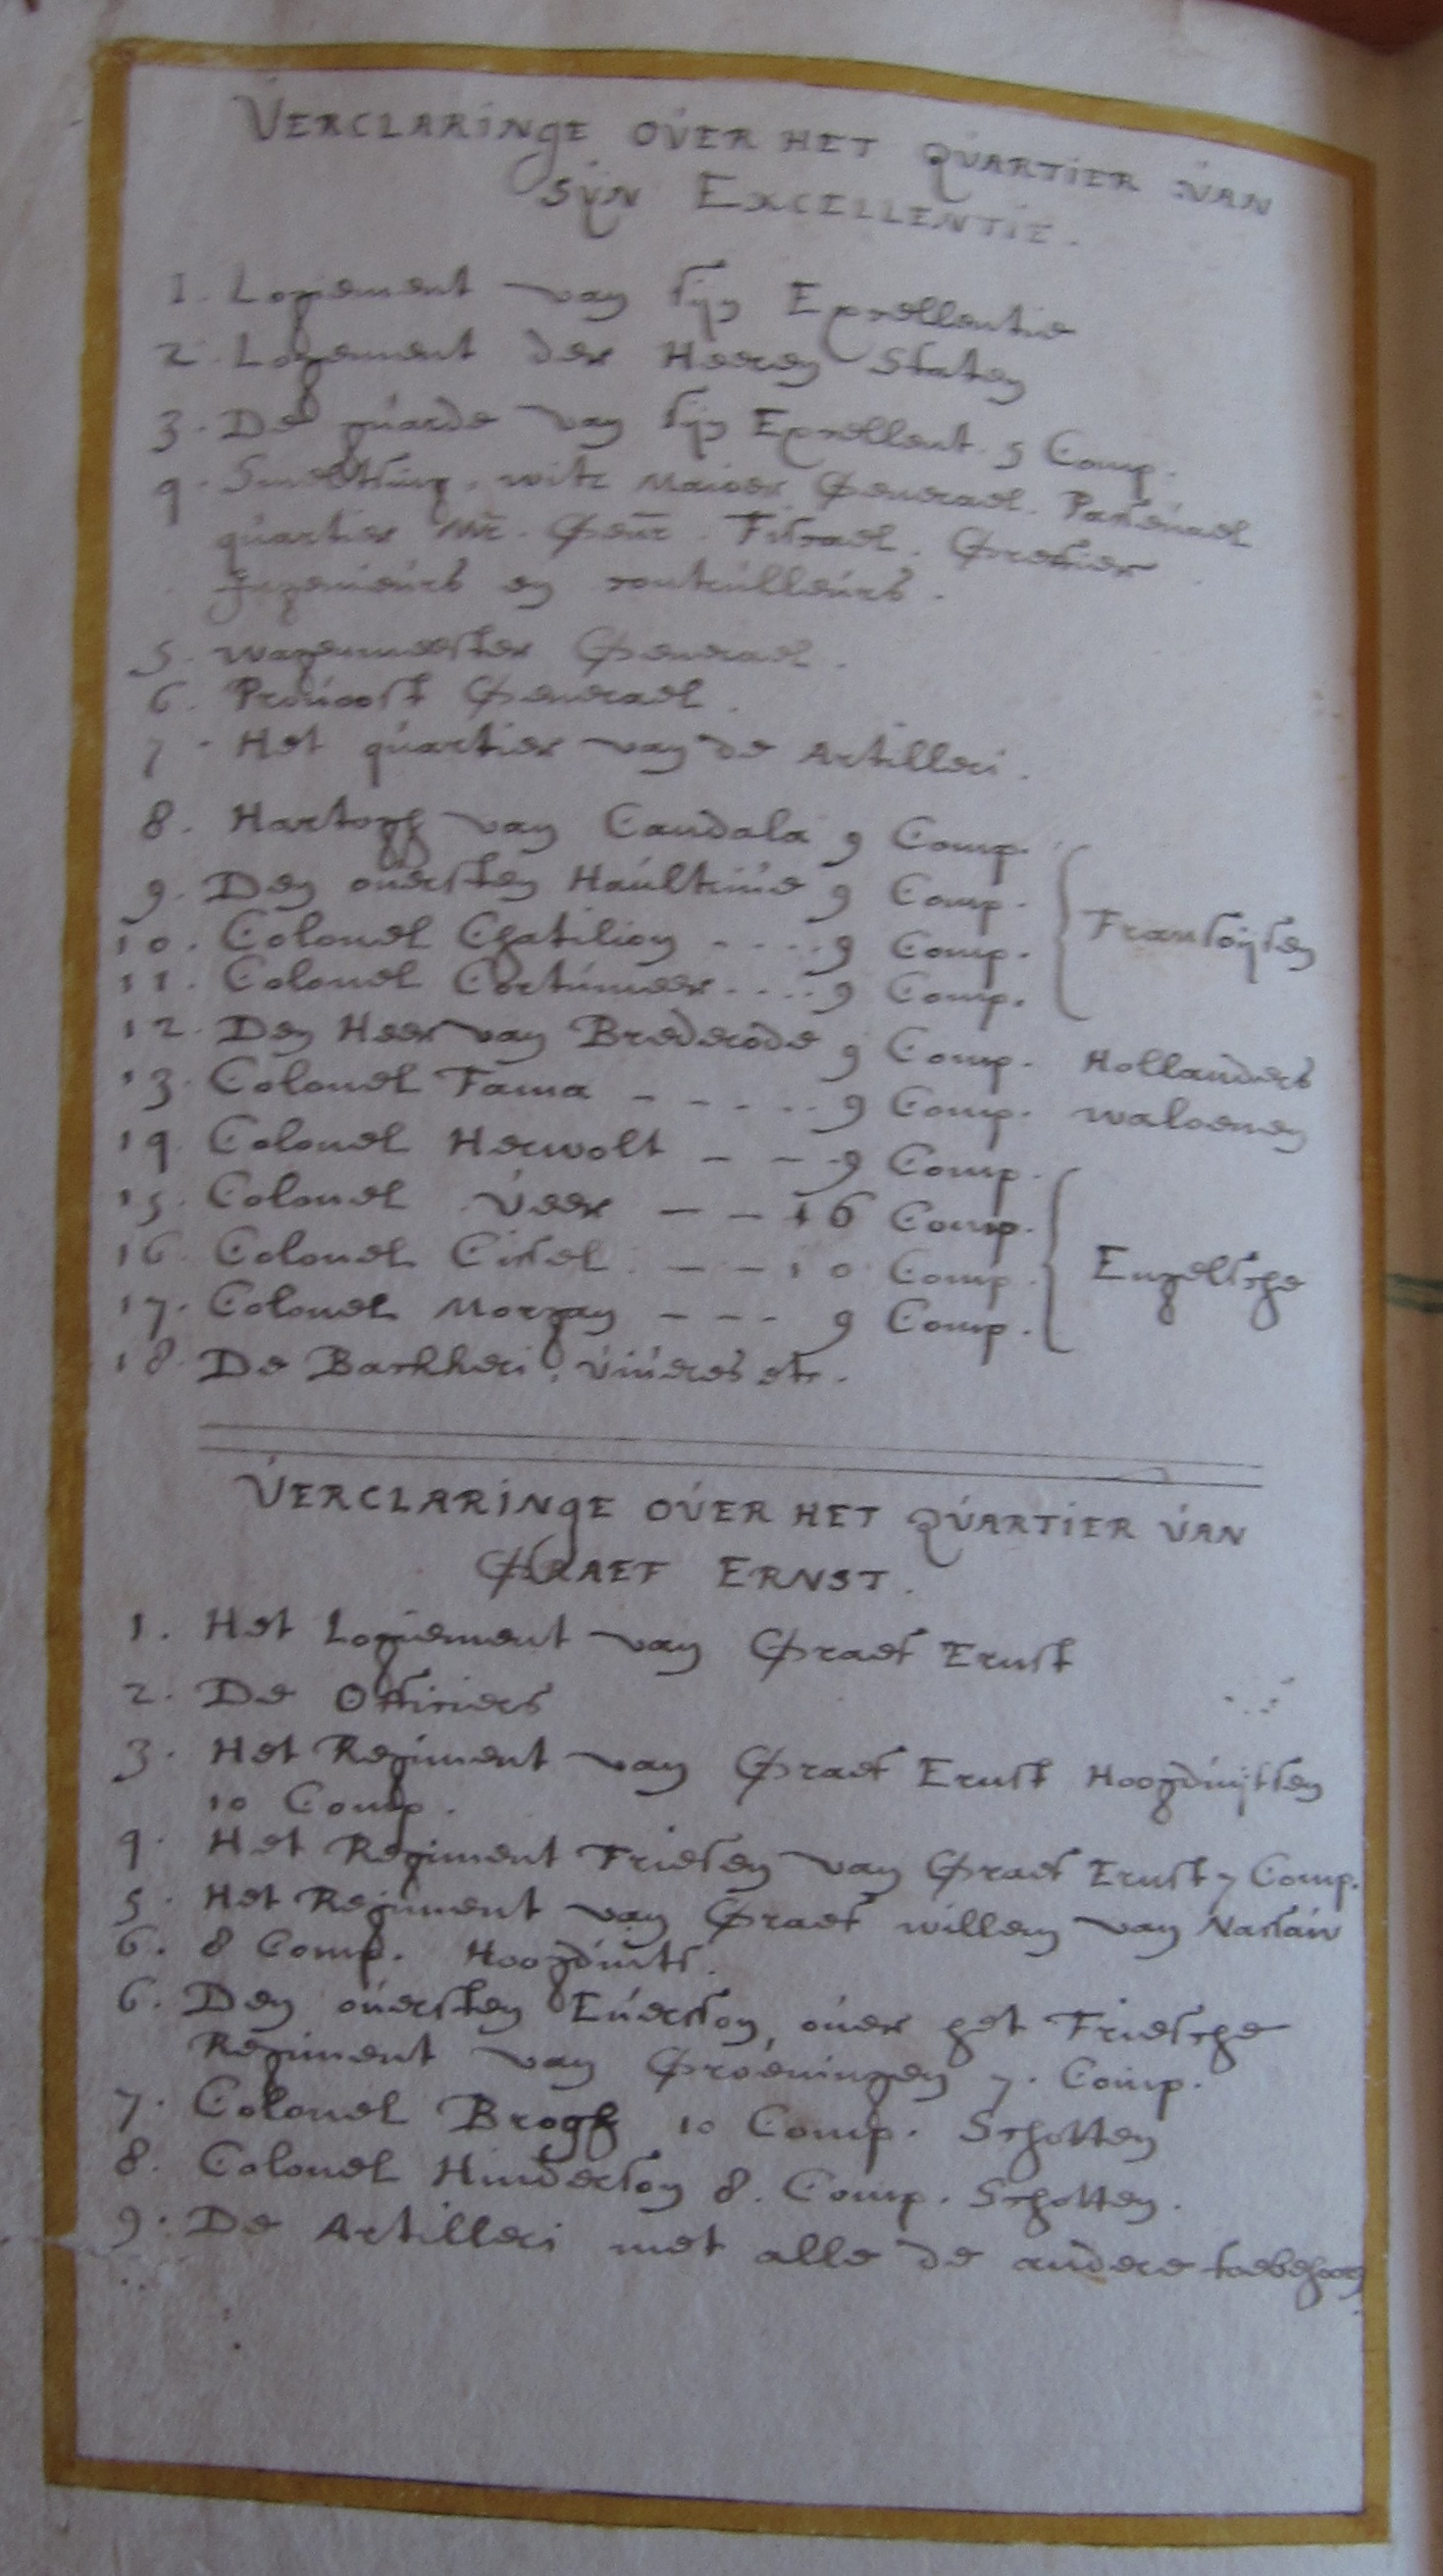 VERCLARINGE OVER HET QUARTIER VAN
SYN EXCELLENTIE.
1. Logiement van sijn Excellentie
2. Logement der Heeren Staten
3. De guarde van sijn Excellent. 5 Comp.
4. Smeltsing. witz Maioer Generael. Passeuael
quartier Mr. Genr. Fiscael. Greffier
Ingenieurs en contrulleurs.
5. wagenmeester Generael.
6. Prouoost Generael.
7. Het quartier van de Artilleri.
8. Hartogh van Candala 9 Comp.
9. Den ouersten Haultriue 9 Comp.
10. Colonel Chatilion .... 9 Comp.
Fransoijsen
11. Colonel Cortumeer .... 9 Comp.
12. Den Heer van Brederode 9 Comp. Hollanders
13. Colonel Fama - - - . . 9 Comp. waloenen
14. Colonel Herwolt - - - 9 Comp.
15. Colonel Veer - - 16 Comp.
16. Colonel Cissel - - 10 Comp.
Engelsche
17. Colonel Morgan - - - 9 Comp.
18. De Backkeri, viueres etc.
VERCLARINGE OVER HET QUARTIER VAN
GRAEF ERNST.
1. Het Logiement van Graef Ernst
2. De Officiers
3. Het Regiment van Graef Ernst Hoogduijtsen
10 Comp.
4. Het Regiment Friesen van Graef Ernst 7 Comp.
5. Het Regiment van Graef willem van Nassau
6. 8 Comp. Hoogduits.
6. Den ouersten Euerson, ouer het Friesche
Regiment van Groeningen 7. Comp.
7. Colonel Brogh 10 Comp. Schotten
8. Colonel Hinderson 8. Comp. Schotten.
9. De Artilleri met alle de andere toebehoorn